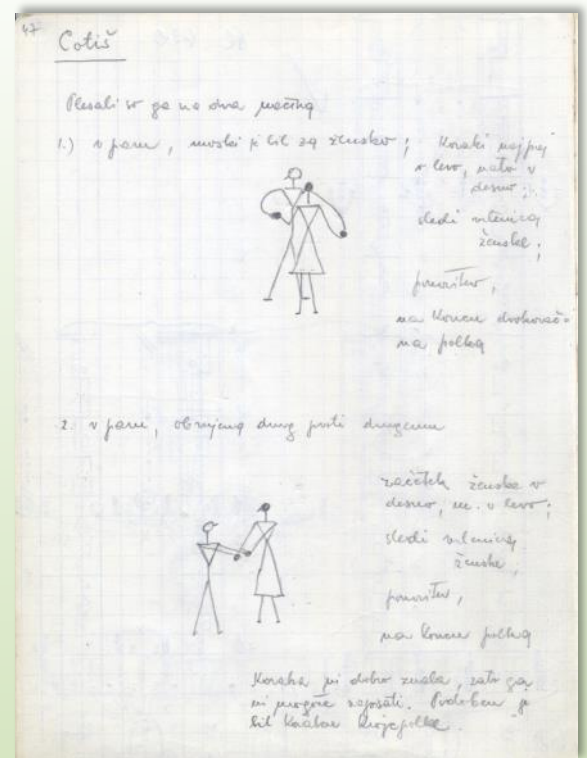 47
Cotiš
Plesali so ga na dva načina
1.) v paru, moski je bil za žensko; Koraki najprej
v levo, nato v
desno;
sledi vrtenica
ženske;
ponovitev,
na koncu dvokorač-
na polka
2. v paru, obrnjena drug proti drugemu
začetek ženske v
desno, m. v levo;
sledi vrtenica
ženske,
ponovitev,
na koncu polka
Koraka ni dobro znala, zato ga
ni mogoče zapisati. Podoben je
bil koraku